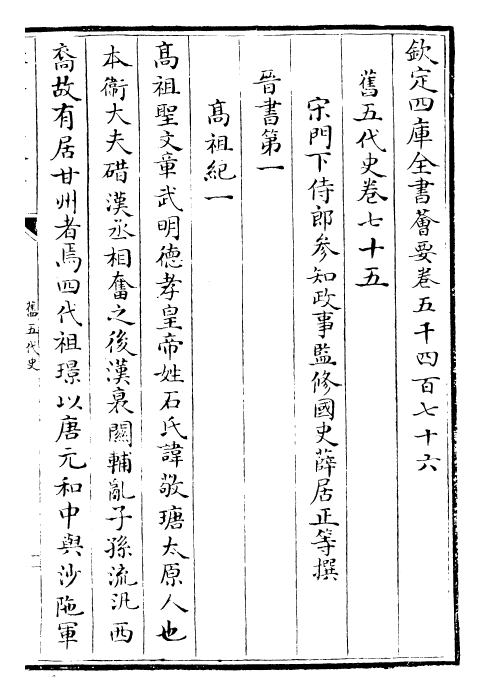 欽定四庫全書薈要卷五千四百七十六
舊五代史卷七十五
宋門下侍郎參知政事監修國史薛居正等撰
晉書第一
高祖紀一
高祖聖文章武明德孝皇帝姓石氏諱敬瑭太原人也
本衞大夫碏漢丞相奮之後漢衰關輔亂子孫流汎西
裔故有居甘州者焉四代祖璟以唐元和中與沙陁軍
舊五代史